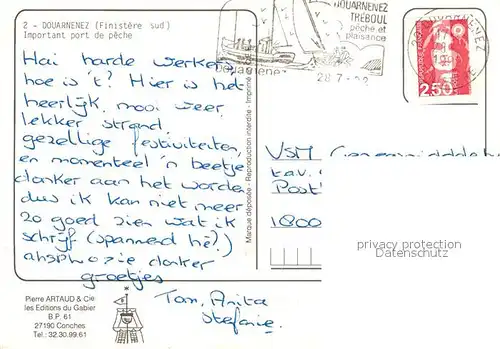 2 - DOUARNENEZ (Finistère sud)
Important port de pêche
DOUARNENEZ
TRÉBOUL
pêche et
plaisance
28.7-92
2,50
Hai harde werker,
hoe is 't? Hier is het
heerlijk, mooi weer,
lekker strand,
gezellige festiviteiten
en momenteel 'n beetje
donker aan het worden
dus ik kan niet meer
zo goed zien wat ik
schrijf (spannend hè?)
donker
groetjes
Ton, Anita
Stefanie.
VSM
t.a.v.
Post
1800
Marque déposée - Reproduction interdite - Imprimé
privacy protection
Datenschutz
Pierre ARTAUD & Cie
les Editions du Gabier
B.P. 61
27190 Conches
Tel.: 32.30.99.61